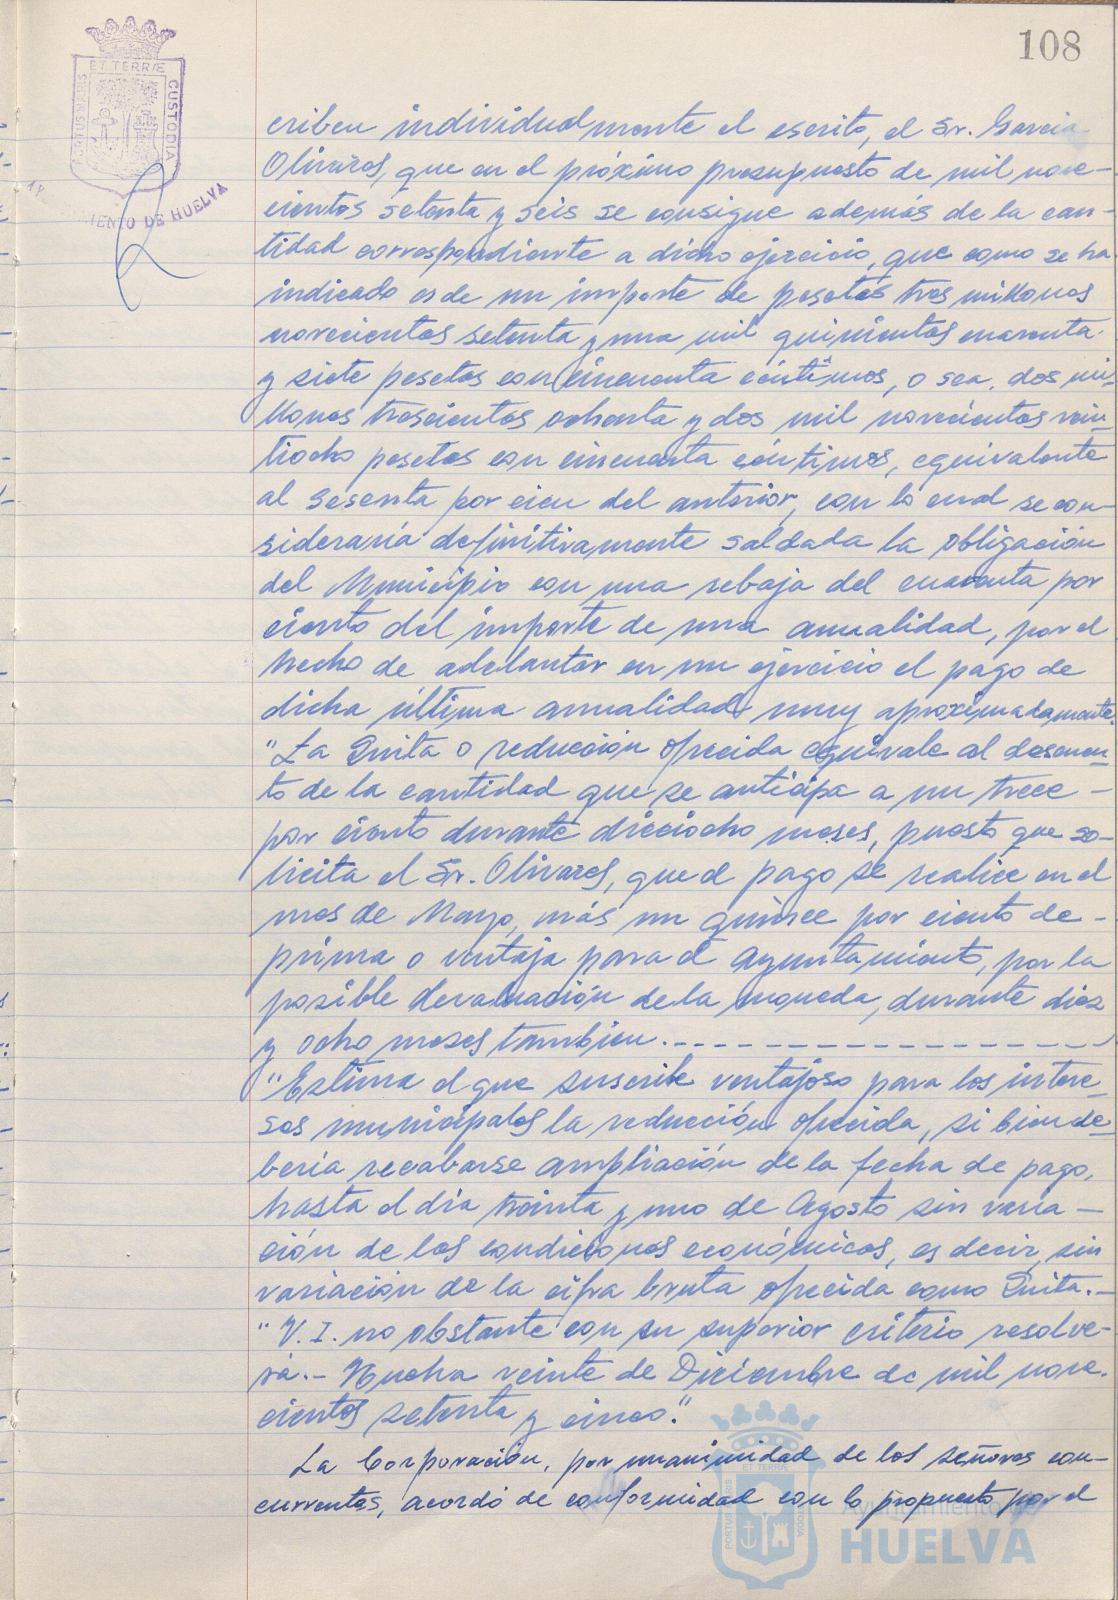 108
ET TERRÆ
PORTUS MARIS
CUSTODIA
AYUNTAMIENTO DE HUELVA
criben individualmente el escrito, el Sr. Garcia
Olivares, que en el próximo presupuesto de mil nove-
cientos setenta y seis se consigne además de la can-
tidad correspondiente a dicho ejercicio, que como se ha
indicado es de un importe de pesetas tres millones
novecientas setenta y una mil quinientas cuarenta
y siete pesetas con cincuenta céntimos, o sea, dos mi-
llones trescientas ochenta y dos mil novecientas vein-
tiocho pesetas con cincuenta céntimos, equivalente
al sesenta por cien del anterior, con lo cual se con-
sideraría definitivamente saldada la obligación
del Municipio con una rebaja del cuarenta por
ciento del importe de una anualidad, por el
hecho de adelantar en un ejercicio el pago de
dicha última anualidad muy aproximadamente.
"La Quita o reducción ofrecida equivale al descuen-
to de la cantidad que se anticipa a un trece -
por ciento durante dieciocho meses, puesto que so-
licita el Sr. Olivares, que el pago se realice en el
mes de Mayo, más un quince por ciento de -
prima o ventaja para el Ayuntamiento, por la
posible devaluación de la moneda, durante diez
y ocho meses tambien.-
"Estima el que suscribe ventajoso para los intere-
ses municipales la reducción ofrecida, si bien de-
beria recabarse ampliación de la fecha de pago,
hasta el dia treinta y uno de Agosto sin varia-
ción de las condiciones económicas, es decir, sin
variación de la cifra bruta ofrecida como Quita.-
"V. I. no obstante con su superior criterio resolve-
rá.- Huelva veinte de Diciembre de mil nove-
cientos setenta y cinco."
La Corporación, por unanimidad de los señores con-
currentes, acordó de conformidad con lo propuesto por el
Ayuntamiento de
HUELVA